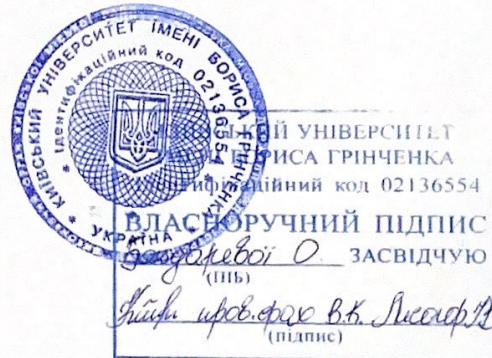 КИЇВСЬКИЙ УНІВЕРСИТЕТ ІМЕНІ БОРИСА ГРІНЧЕНКА
* Ідентифікаційний код 02136554 *
* УКРАЇНА *
УНІВЕРСИТЕТ
БОРИСА ГРІНЧЕНКА
код 02136554
ВЛАСНОРУЧНИЙ ПІДПИС
О. ЗАСВІДЧУЮ
(ПІБ)
пров. фах В.К.
(підпис)